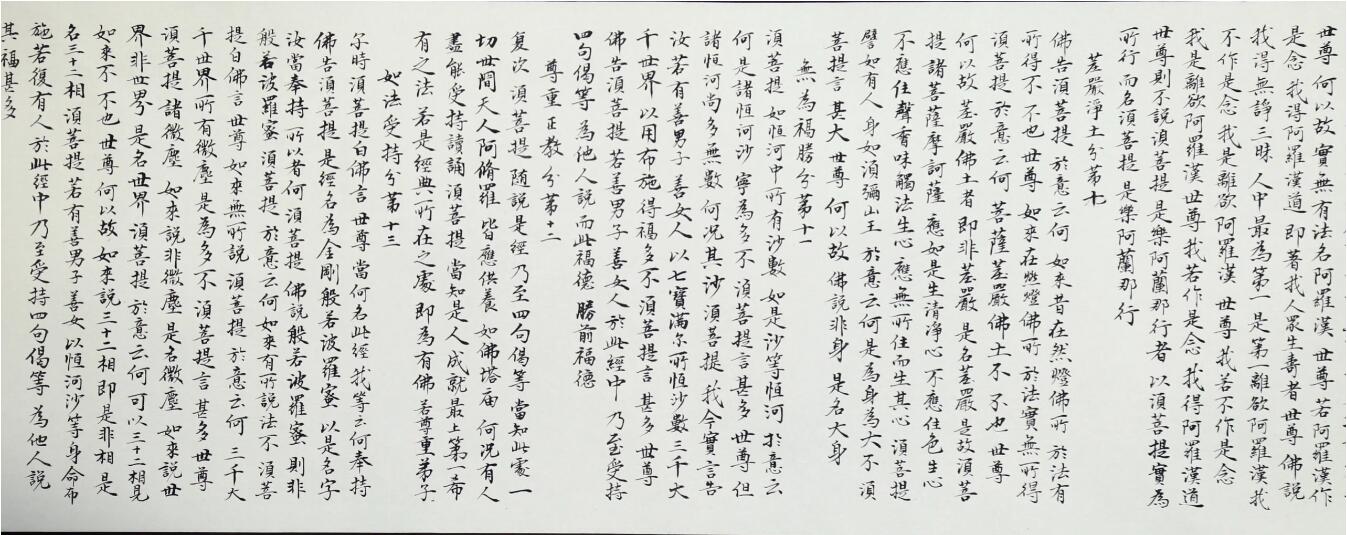 世尊何以故實無有法名阿羅漢世尊若阿羅漢作
是念我得阿羅漢道即著我人眾生壽者世尊佛說
我得無諍三昧人中最為第一是第一離欲阿羅漢我
不作是念我是離欲阿羅漢世尊我若不作是念
我是離欲阿羅漢世尊我若作是念我得阿羅漢道
世尊則不說須菩提是樂阿蘭那行者以須菩提實為
所行而名須菩提是樂阿蘭那行
莊嚴淨土分第七
佛告須菩提於意云何如來昔在然燈佛所於法有
所得不不也世尊如來在然燈佛所於法實無所得
須菩提於意云何菩薩莊嚴佛土不不也世尊
何以故莊嚴佛土者即非莊嚴是名莊嚴是故須菩
提諸菩薩摩訶薩應如是生清淨心不應住色生心
不應住聲香味觸法生心應無所住而生其心須菩提
譬如有人身如須彌山王於意云何是為身為大不須
菩提言其大世尊何以故佛說非身是名大身
無為福勝分第十一
須菩提如恒河中所有沙數如是沙等恒河於意云
何是諸恒河沙寧為多不須菩提言甚多世尊但
諸恒河尚多無數何況其沙須菩提我今實言告
汝若有善男子善女人以七寶滿尔所恒沙數三千大
千世界以用布施得福多不須菩提言甚多世尊
佛告須菩提若善男子善女人於此經中乃至受持
四句偈等為他人說而此福德勝前福德
尊重正教分第十二
复次須菩提随說是經乃至四句偈等當知此處一
切世間天人阿脩羅皆應供養如佛塔庙何況有人
盡能受持讀誦須菩提當知是人成就最上第一希
有之法若是經典所在之處即為有佛若尊重弟子
如法受持分第十三
尔時須菩提白佛言世尊當何名此經我等云何奉持
佛告須菩提是經名為金剛般若波羅蜜以是名字
汝當奉持所以者何須菩提佛說般若波羅蜜則非
般若波羅蜜須菩提於意云何如來有所說法不須菩
提白佛言世尊如來無所說須菩提於意云何三千大
千世界所有微塵是為多不須菩提言甚多世尊
須菩提諸微塵如來說非微塵是名微塵如來說世
界非世界是名世界須菩提於意云何可以三十二相見
如來不不也世尊何以故如來說三十二相即是非相是
名三十二相須菩提若有善男子善女以恒河沙等身命布
施若復有人於此經中乃至受持四句偈等為他人說
其福甚多